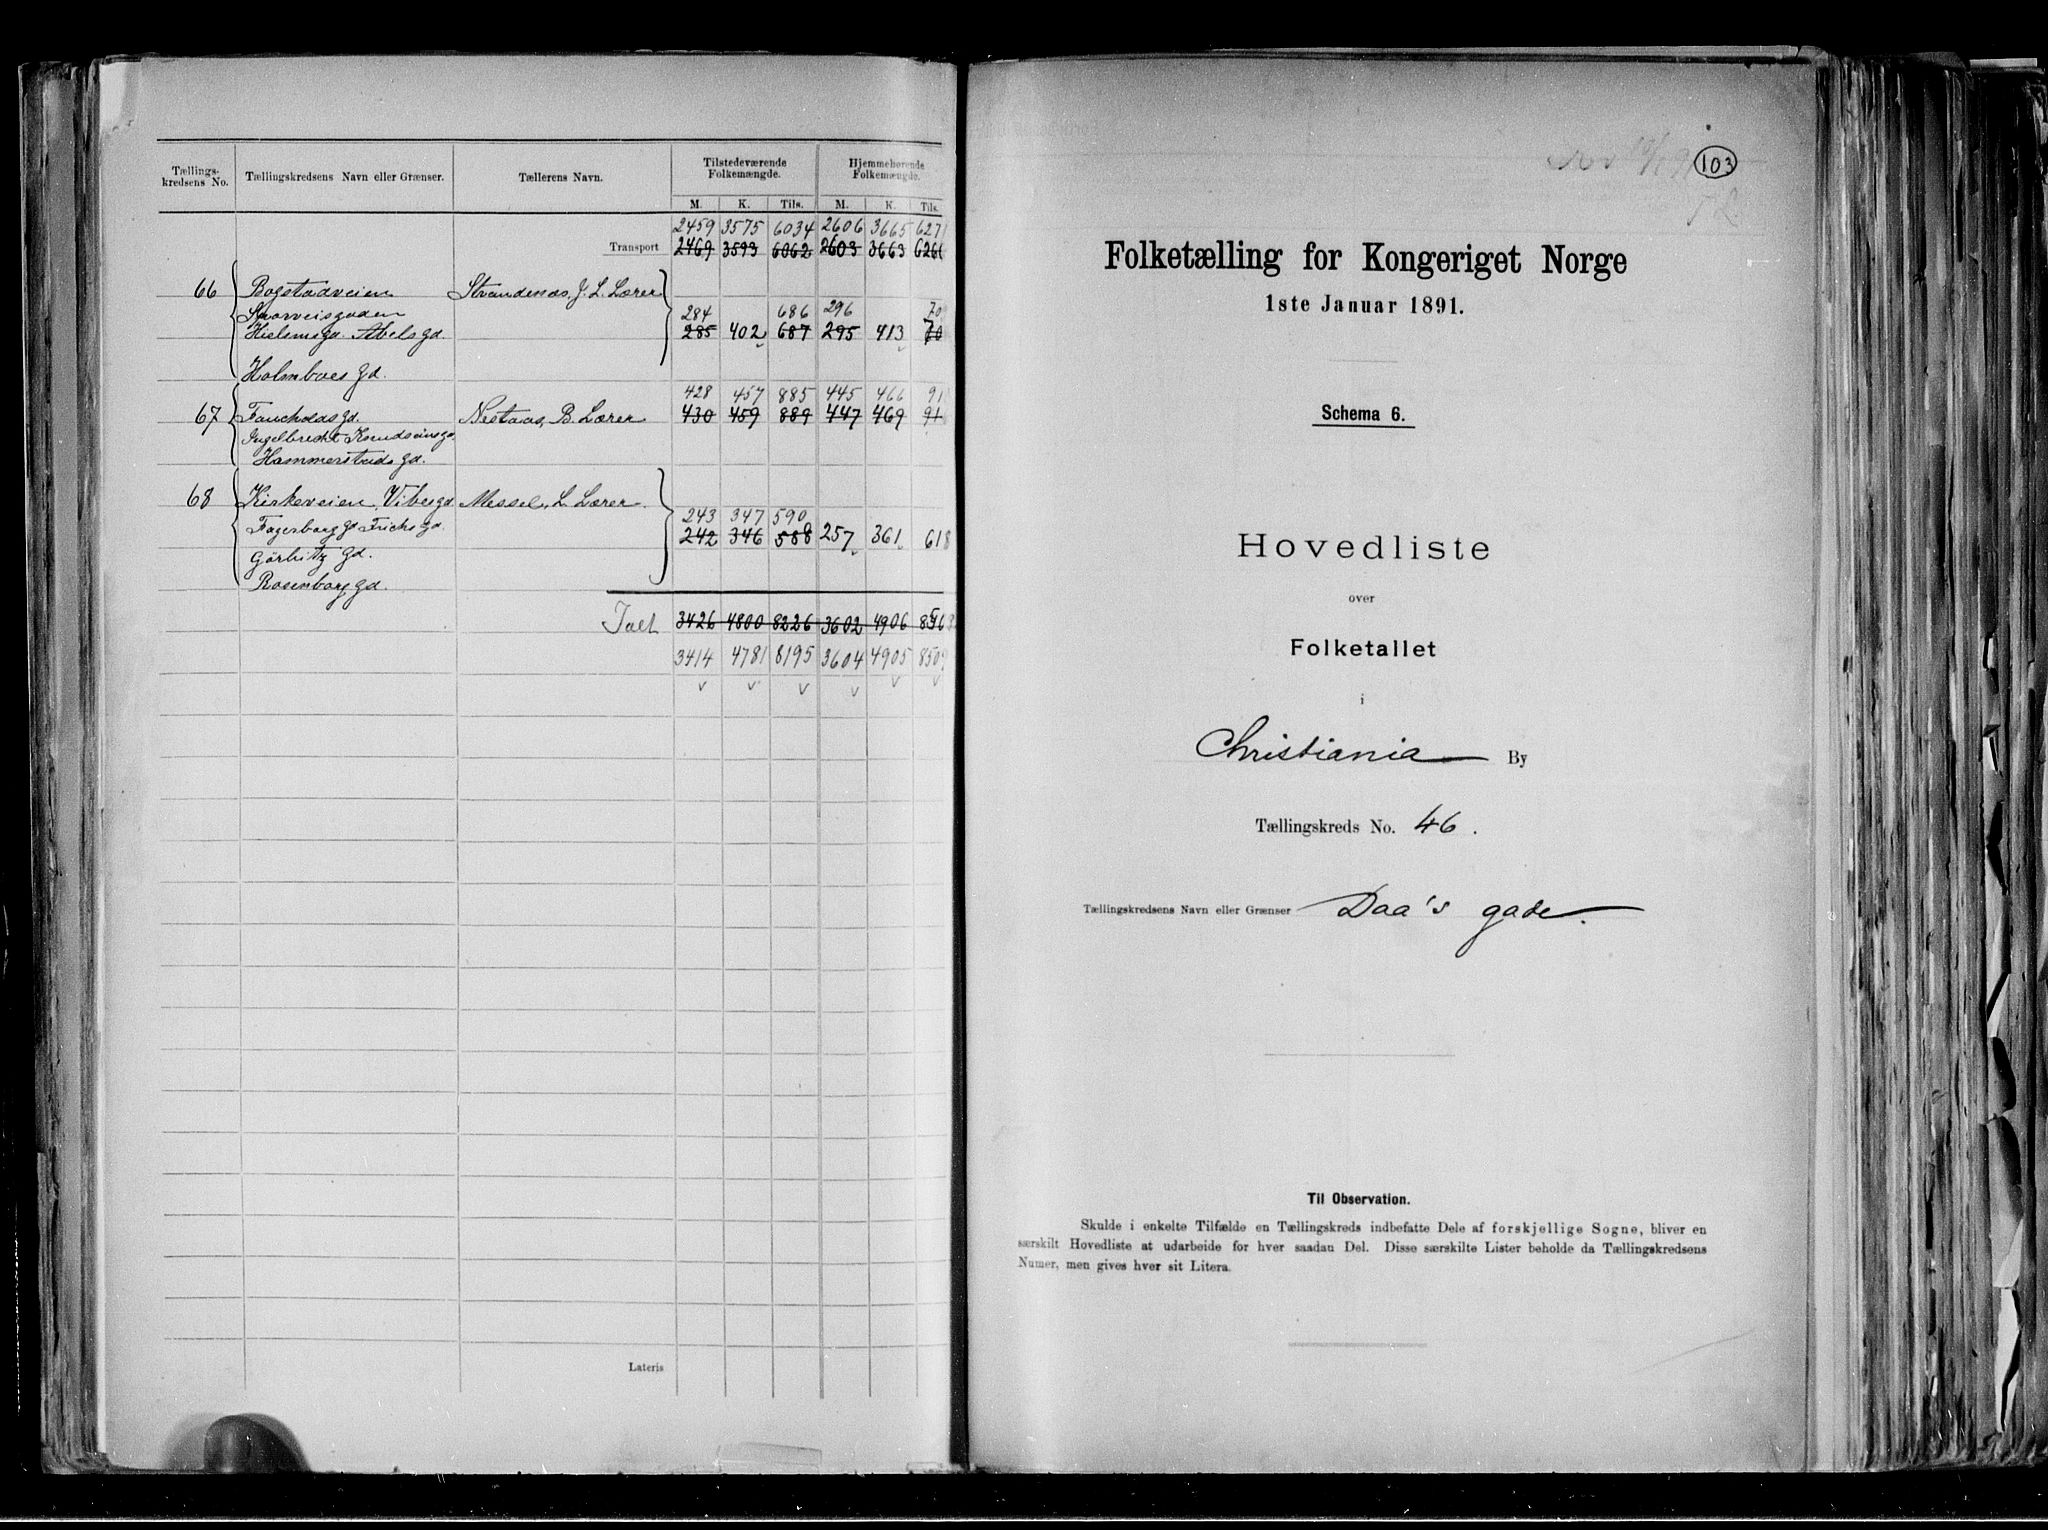 Tællings-
kredsens No.
Tællingskredsens Navn eller Grænser.
Tællerens Navn.
Tilstedeværende
Folkemængde.
Hjemmehørende
Folkemængde.
M. K. Tils. M. K. Tils.
2459 3575 6034 2606 3665 6271
Transport 2469 3593 6062 2603 3663
66 Bogstadveien Strandenæs, J. L. Lærer
284 686 296
285 402 687 295 413
Holmboes gd.
428 457 885 445 466
67 Fauchaldsgd. Nestaas, B. Lærer 430 459 889 447 469
Ingelbrecht Knudssønsgd.
Hammerstads gd.
68 Kirkeveien, Vibesgd. Messel, L. Lærer
243 347 590
Fagerborg gd. Frichs gd. 242 346 588 257 361 618
Gørbitz gd.
Rosenborg gd.
Ialt 3426 4800 8226 3602 4906
3414 4781 8195 3604 4905 8509
Lateris
103
Folketælling for Kongeriget Norge
1ste Januar 1891.
Schema 6.
Hovedliste
over
Folketallet
i
Christiania By
Tællingskreds No. 46.
Tællingskredsens Navn eller Grænser Daa's gade.
Til Observation.
Skulde i enkelte Tilfælde en Tællingskreds indbefatte Dele af forskjellige Sogne, bliver en
særskilt Hovedliste at udarbeide for hver saadan Del. Disse særskilte Lister beholde da Tællingskredsens
Numer, men gives hver sit Litera.